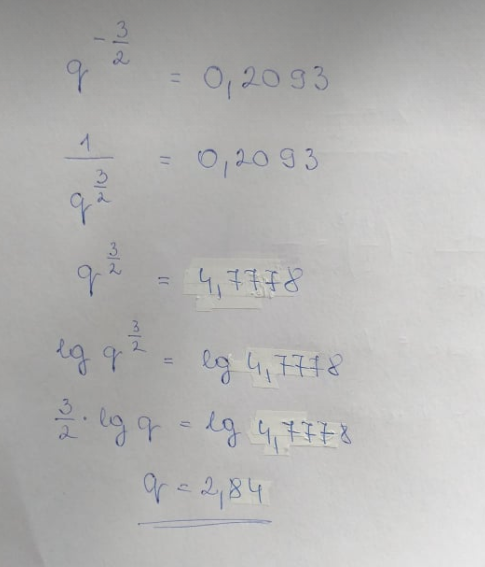 q^{-\frac{3}{2}} = 0,2093
\frac{1}{q^{\frac{3}{2}}} = 0,2093
q^{\frac{3}{2}} = 4,7778
lg q^{\frac{3}{2}} = lg 4,7778
\frac{3}{2} · lg q = lg 4,7778
q = 2,84